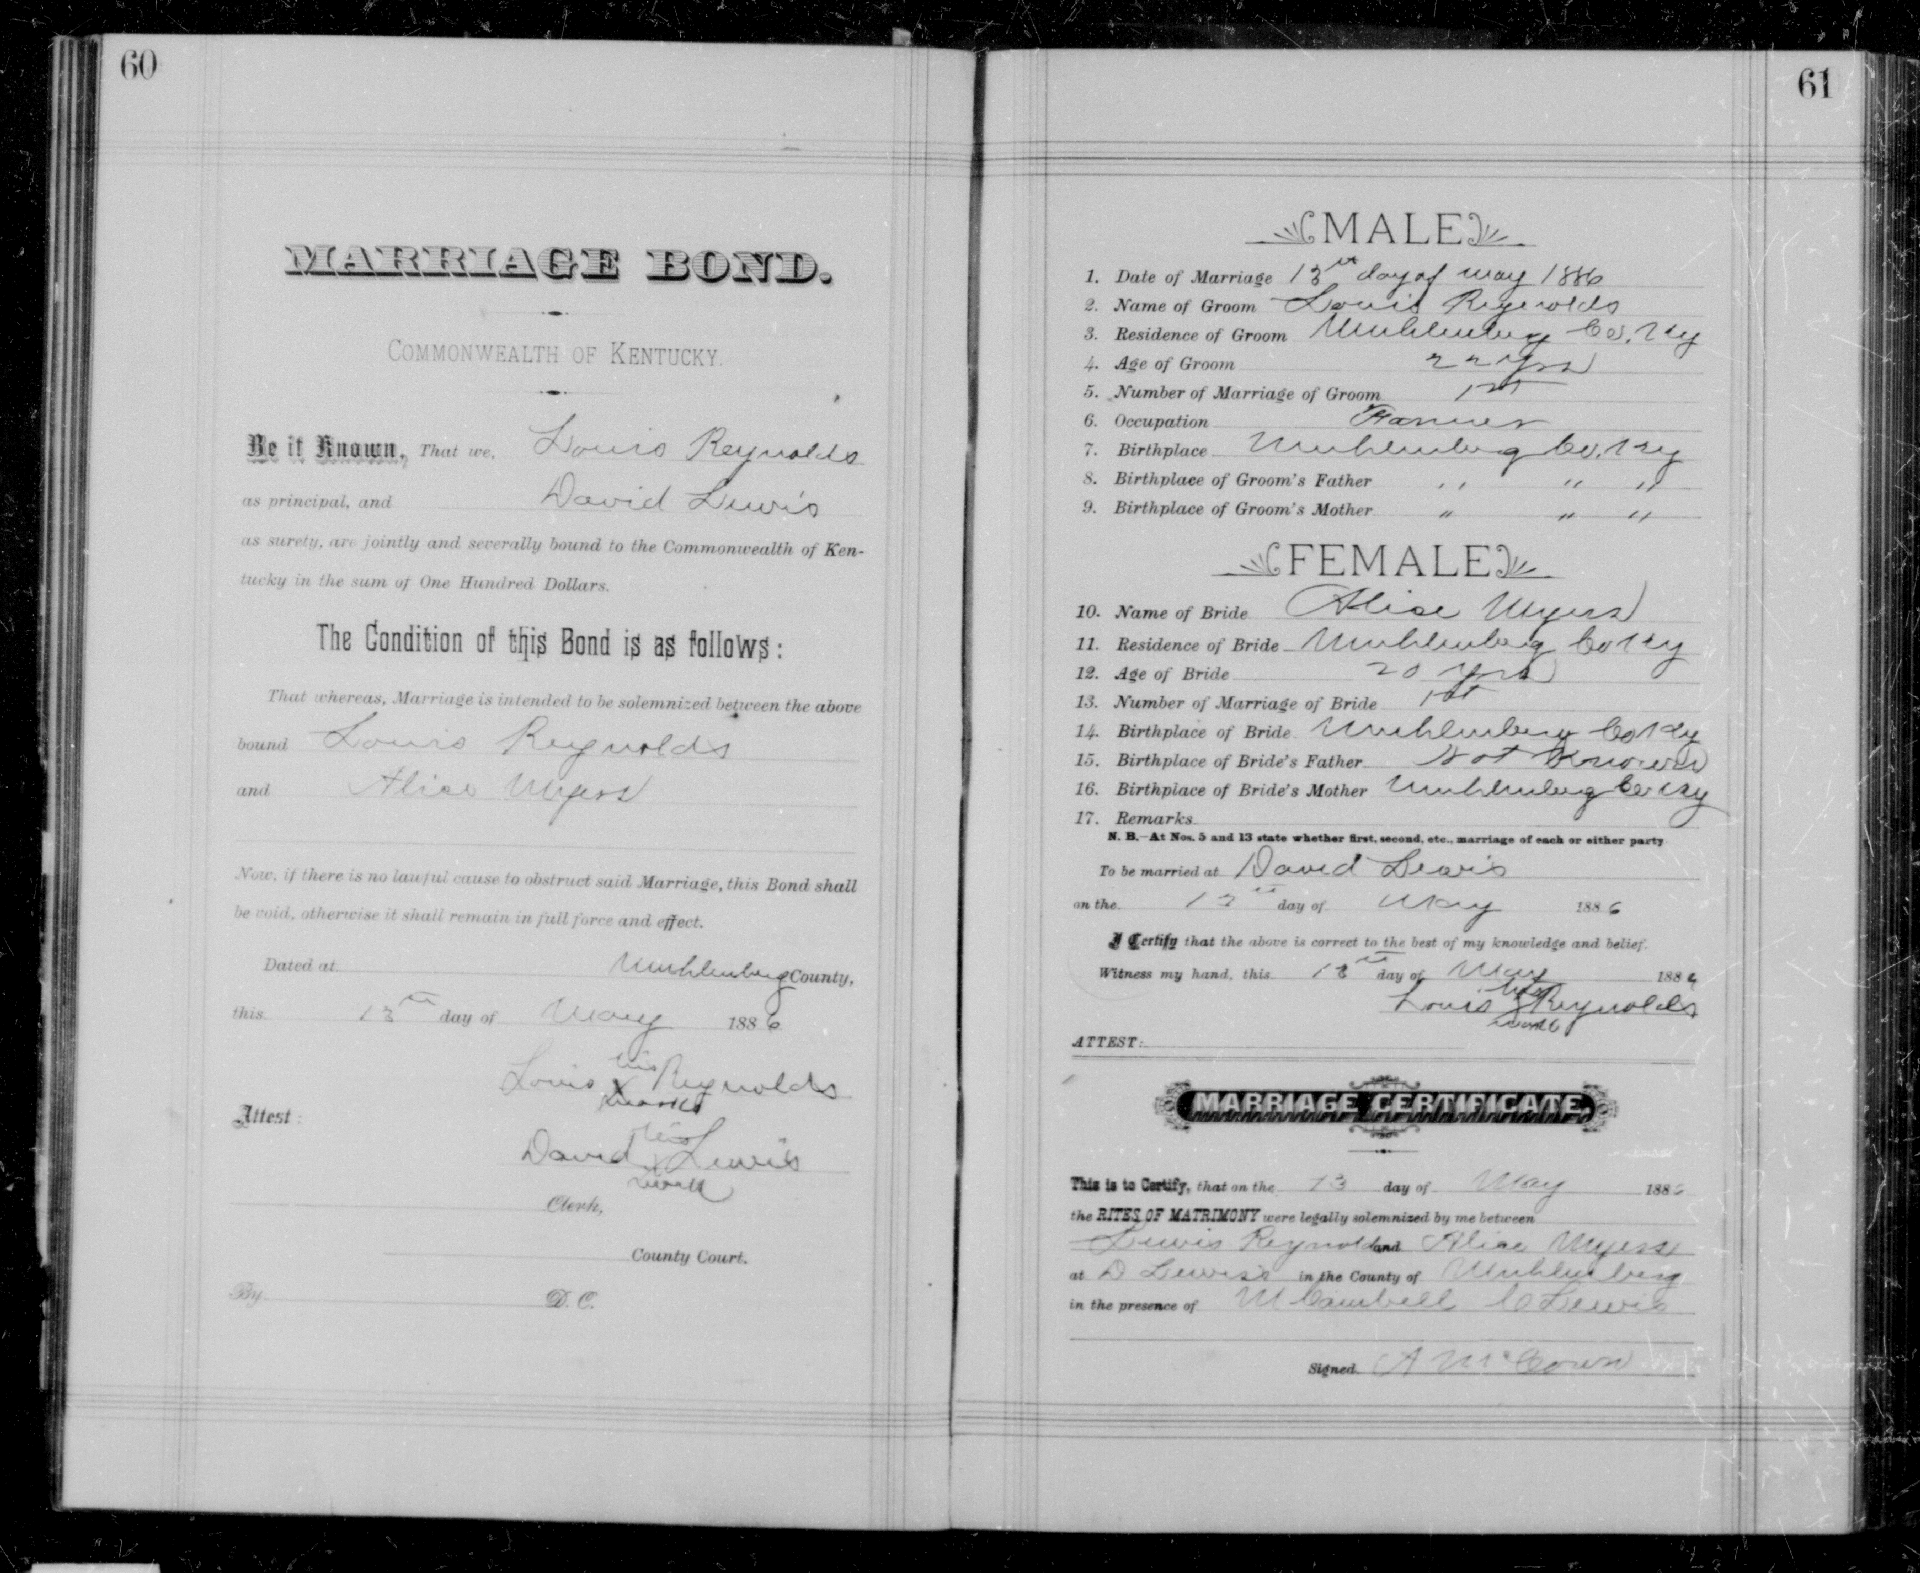 60
MARRIAGE BOND.
COMMONWEALTH OF KENTUCKY.
Be it Known, That we, Louis Reynolds
as principal, and David Lewis
as surety, are jointly and severally bound to the Commonwealth of Ken-
tucky in the sum of One Hundred Dollars.
The Condition of this Bond is as follows:
That whereas, Marriage is intended to be solemnized between the above
bound Louis Reynolds
and Alice Myers
Now, if there is no lawful cause to obstruct said Marriage, this Bond shall
be void, otherwise it shall remain in full force and effect.
Dated at Muhlenberg County,
this 13th day of May 1886
his
Louis X Reynolds
mark
Attest:
his
David X Lewis
mark
Clerk,
County Court.
By D. C.
61
MALE
1. Date of Marriage 13th day of May 1886
2. Name of Groom Louis Reynolds
3. Residence of Groom Muhlenberg Co, Ky
4. Age of Groom 22 yrs
5. Number of Marriage of Groom 1st
6. Occupation Farmer
7. Birthplace Muhlenberg Co, Ky
8. Birthplace of Groom's Father " " "
9. Birthplace of Groom's Mother " " "
FEMALE
10. Name of Bride Alice Myers
11. Residence of Bride Muhlenberg Co Ky
12. Age of Bride 20 yrs
13. Number of Marriage of Bride 1st
14. Birthplace of Bride Muhlenberg Co Ky
15. Birthplace of Bride's Father Not Known
16. Birthplace of Bride's Mother Muhlenberg Co Ky
17. Remarks
N. B.—At Nos. 5 and 13 state whether first, second, etc., marriage of each or either party
To be married at David Lewis
on the 13th day of May 1886
I Certify that the above is correct to the best of my knowledge and belief.
Witness my hand, this 13th day of May 1886
his
Louis X Reynolds
mark
ATTEST:
MARRIAGE CERTIFICATE.
This is to Certify, that on the 13 day of May 1886
the RITES OF MATRIMONY were legally solemnized by me between
Lewis Reynolds and Alice Myers
at D Lewis's in the County of Muhlenberg
in the presence of M Cambell C Lewis
Signed. A McCown